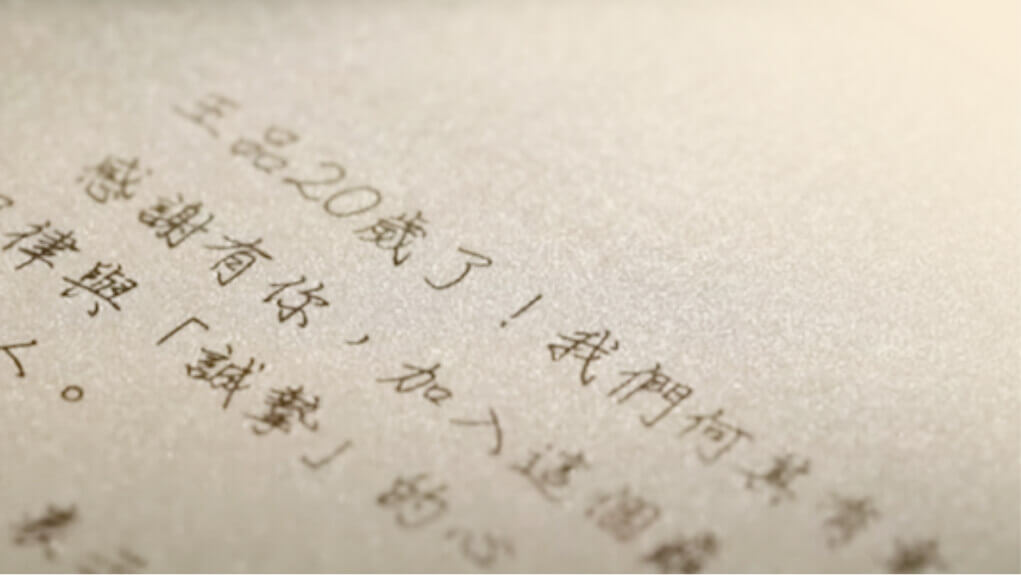 王品20歲了！我們何其有幸
感謝有你，加入這個
律與「誠摯」的心
人。